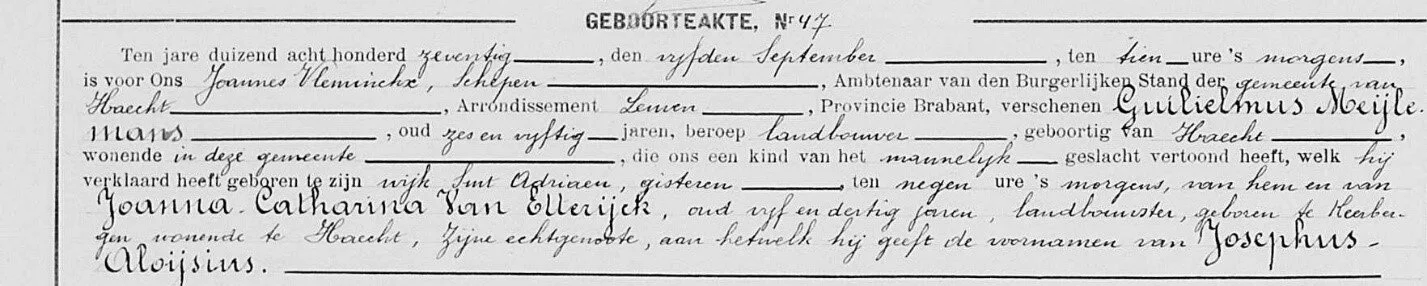 GEBOORTEAKTE, Nr 47
Ten jare duizend acht honderd zeventig, den vyfden September, ten tien ure 's morgens,
is voor Ons Joannes Vleminckx, Schepen, Ambtenaar van den Burgerlijken Stand der gemeente van
Haecht, Arrondissement Leuven, Provincie Brabant, verschenen Guilielmus Meijle-
mans, oud zes en vyftig jaren, beroep landbouwer, geboortig van Haecht,
wonende in deze gemeente, die ons een kind van het mannelyk geslacht vertoond heeft, welk hij
verklaard heeft geboren te zijn wijk Sint Adriaen, gisteren, ten negen ure 's morgens, van hem en van
Joanna-Catharina Van Etterijck, oud vyf en dertig jaren, landbouwster, geboren te Keerber-
gen wonende te Haecht, zijne echtgenoote, aan hetwelk hij geeft de voornamen van Josephus-
Aloijsius.